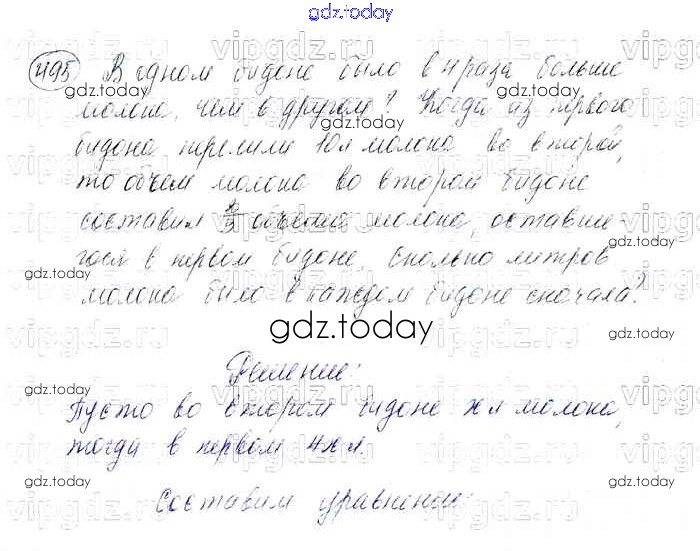 gdz.today
495 В одном бидоне было в 4 раза больше
молока, чем в другом? Когда из первого
бидона перелили 10л молока во второй,
то объем молока во втором бидоне
составил 2/3 объёма молока, оставше-
гося в первом бидоне. Сколько литров
молока было в каждом бидоне сначала?
gdz.today
Решение:
Пусть во втором бидоне x л молока,
тогда в первом 4x л.
Составим уравнение: